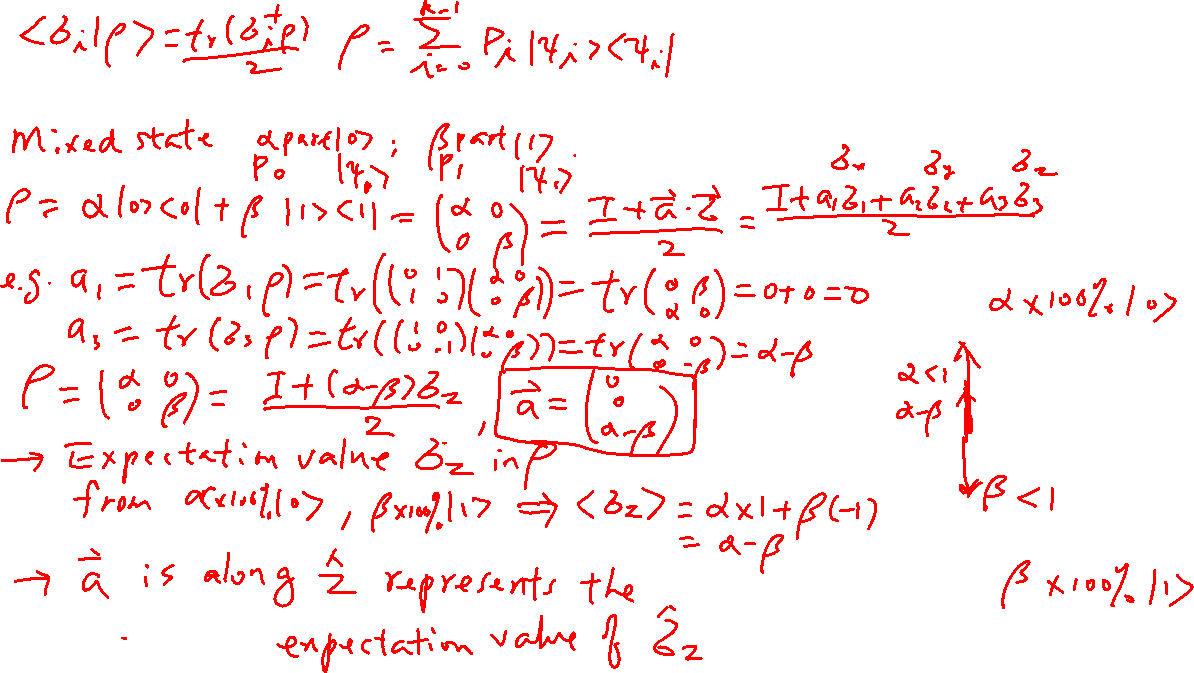 <σᵢ|ρ> = tr(σᵢ†ρ)/2   ρ = Σ_{i=0}^{k-1} Pᵢ |ψᵢ><ψᵢ|
Mixed state α part |0>; β part |1>.
P₀ |ψ₀> P₁ |ψ₁>
σx σy σz
ρ = α|0><0| + β |1><1| = (α 0; 0 β) = (I + a⃗·σ⃗)/2 = (I + a₁σ₁ + a₂σ₂ + a₃σ₃)/2
e.g. a₁ = tr(σ₁ρ) = tr((0 1; 1 0)(α 0; 0 β)) = tr(0 β; α 0) = 0+0=0
α×100% |0>
a₃ = tr(σ₃ρ) = tr((1 0; 0 -1)(α 0; 0 β)) = tr(α 0; 0 -β) = α-β
ρ = (α 0; 0 β) = (I + (α-β)σz)/2, a⃗ = (0; 0; α-β)
α<1
α-β
→ Expectation value σz in ρ
from α×100% |0>, β×100% |1> ⇒ <σz> = α×1+β(-1)
= α-β
β<1
→ a⃗ is along ẑ represents the
β×100% |1>
expectation value of σ̂z